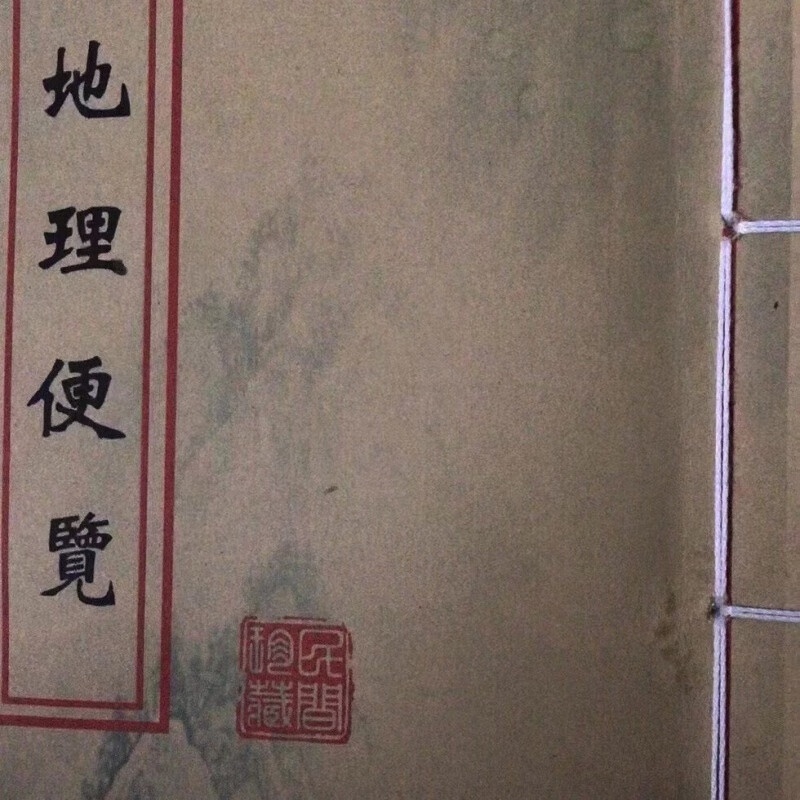 地理便覽
民間珍藏